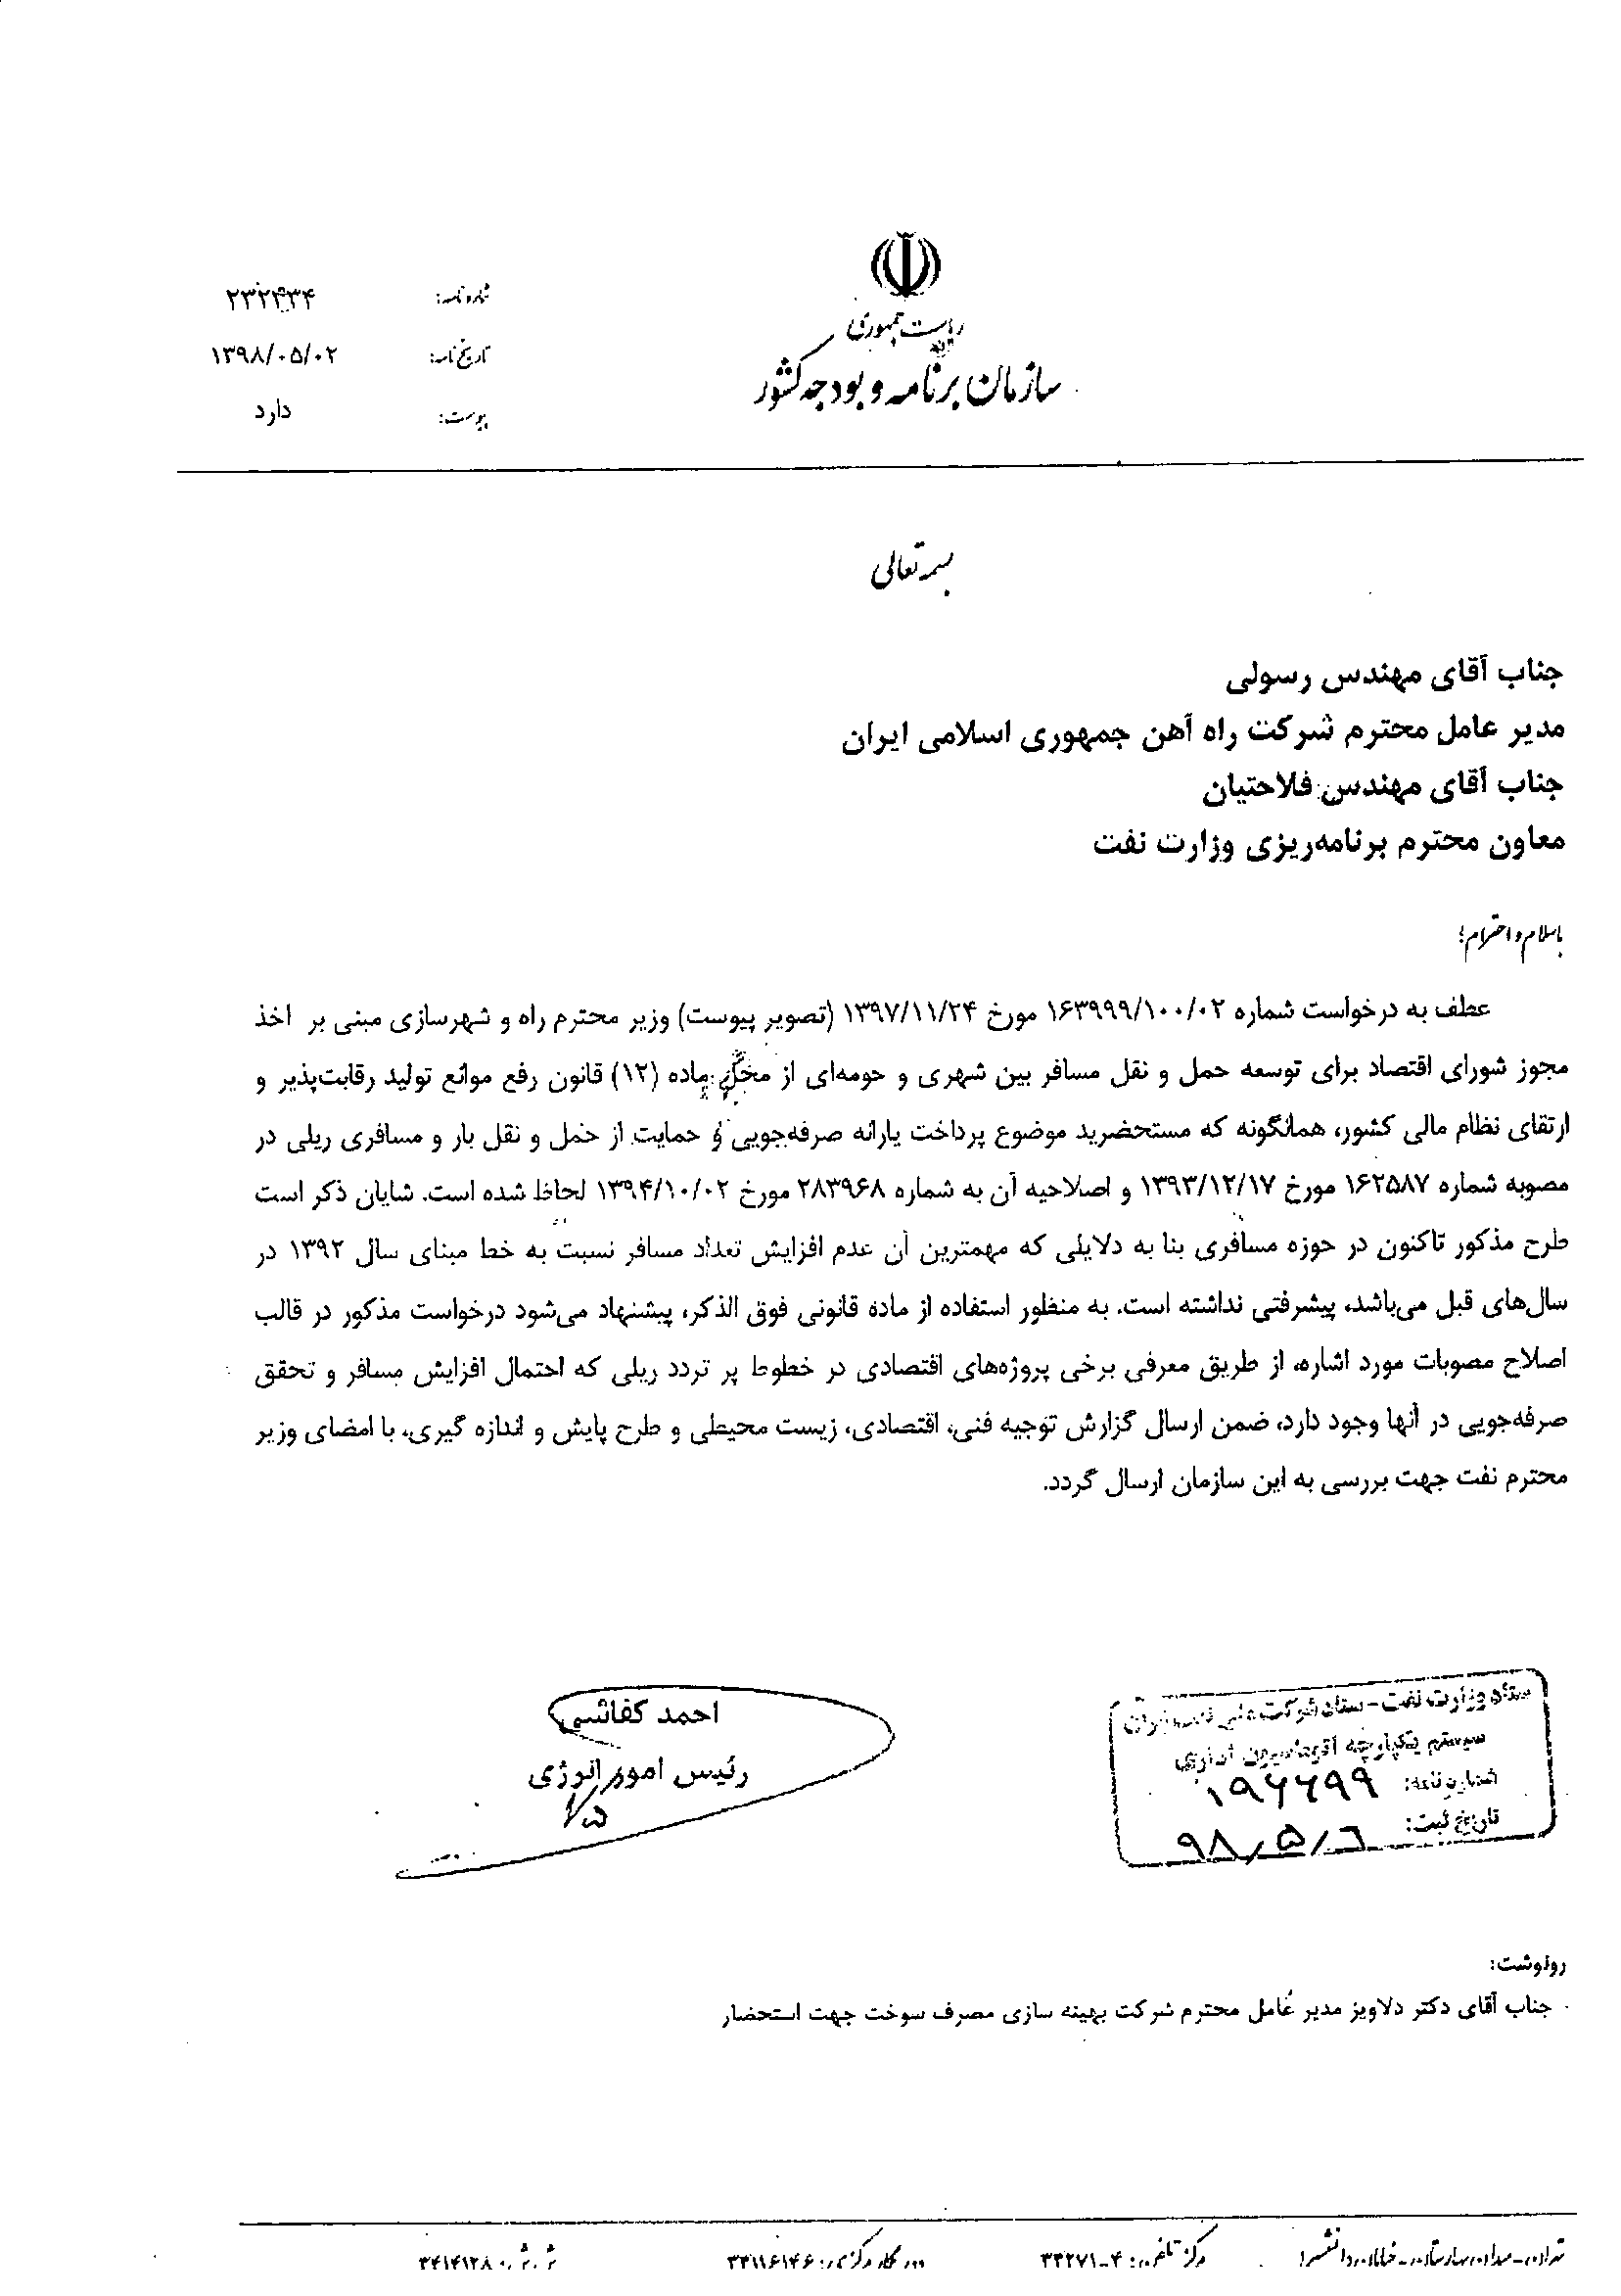 ریاست جمهوری
سازمان برنامه و بودجه کشور
شماره نامه: ۲۳۲۴۳۴
تاریخ نامه: ۱۳۹۸/۰۵/۰۲
پیوست: دارد
بسمه تعالی
جناب آقای مهندس رسولی
مدیر عامل محترم شرکت راه آهن جمهوری اسلامی ایران
جناب آقای مهندس فلاحتیان
معاون محترم برنامه‌ریزی وزارت نفت
باسلام و احترام؛
عطف به درخواست شماره ۱۶۳۹۹۹/۱۰۰/۰۲ مورخ ۱۳۹۷/۱۱/۲۴ (تصویر پیوست) وزیر محترم راه و شهرسازی مبنی بر اخذ
مجوز شورای اقتصاد برای توسعه حمل و نقل مسافر بین شهری و حومه‌ای از محل ماده (۱۲) قانون رفع موانع تولید رقابت‌پذیر و
ارتقای نظام مالی کشور، همانگونه که مستحضرید موضوع پرداخت یارانه صرفه‌جویی و حمایت از حمل و نقل بار و مسافری ریلی در
مصوبه شماره ۱۶۲۵۸۷ مورخ ۱۳۹۳/۱۲/۱۷ و اصلاحیه آن به شماره ۲۸۳۹۶۸ مورخ ۱۳۹۴/۱۰/۰۲ لحاظ شده است. شایان ذکر است
طرح مذکور تاکنون در حوزه مسافری بنا به دلایلی که مهمترین آن عدم افزایش تعداد مسافر نسبت به خط مبنای سال ۱۳۹۲ در
سال‌های قبل می‌باشد، پیشرفتی نداشته است. به منظور استفاده از ماده قانونی فوق الذکر، پیشنهاد می‌شود درخواست مذکور در قالب
اصلاح مصوبات مورد اشاره، از طریق معرفی برخی پروژه‌های اقتصادی در خطوط پر تردد ریلی که احتمال افزایش مسافر و تحقق
صرفه‌جویی در آنها وجود دارد، ضمن ارسال گزارش توجیه فنی، اقتصادی، زیست محیطی و طرح پایش و اندازه گیری، با امضای وزیر
محترم نفت جهت بررسی به این سازمان ارسال گردد.
احمد کفاشی
رئیس امور انرژی
ستاد وزارت نفت - ستاد شرکت ملی نفت ایران
سیستم یکپارچه اتوماسیون اداری
شماره نامه: ۱۹۶۶۹۹
تاریخ ثبت: ۹۸/۵/۶
رونوشت:
جناب آقای دکتر دلاویز مدیر عامل محترم شرکت بهینه سازی مصرف سوخت جهت استحضار
تهران - میدان بهارستان - خیابان دانشسرا مرکز تلفن: ۴-۳۳۲۷۱ دورنگار مرکزی: ۳۳۱۱۶۱۴۶